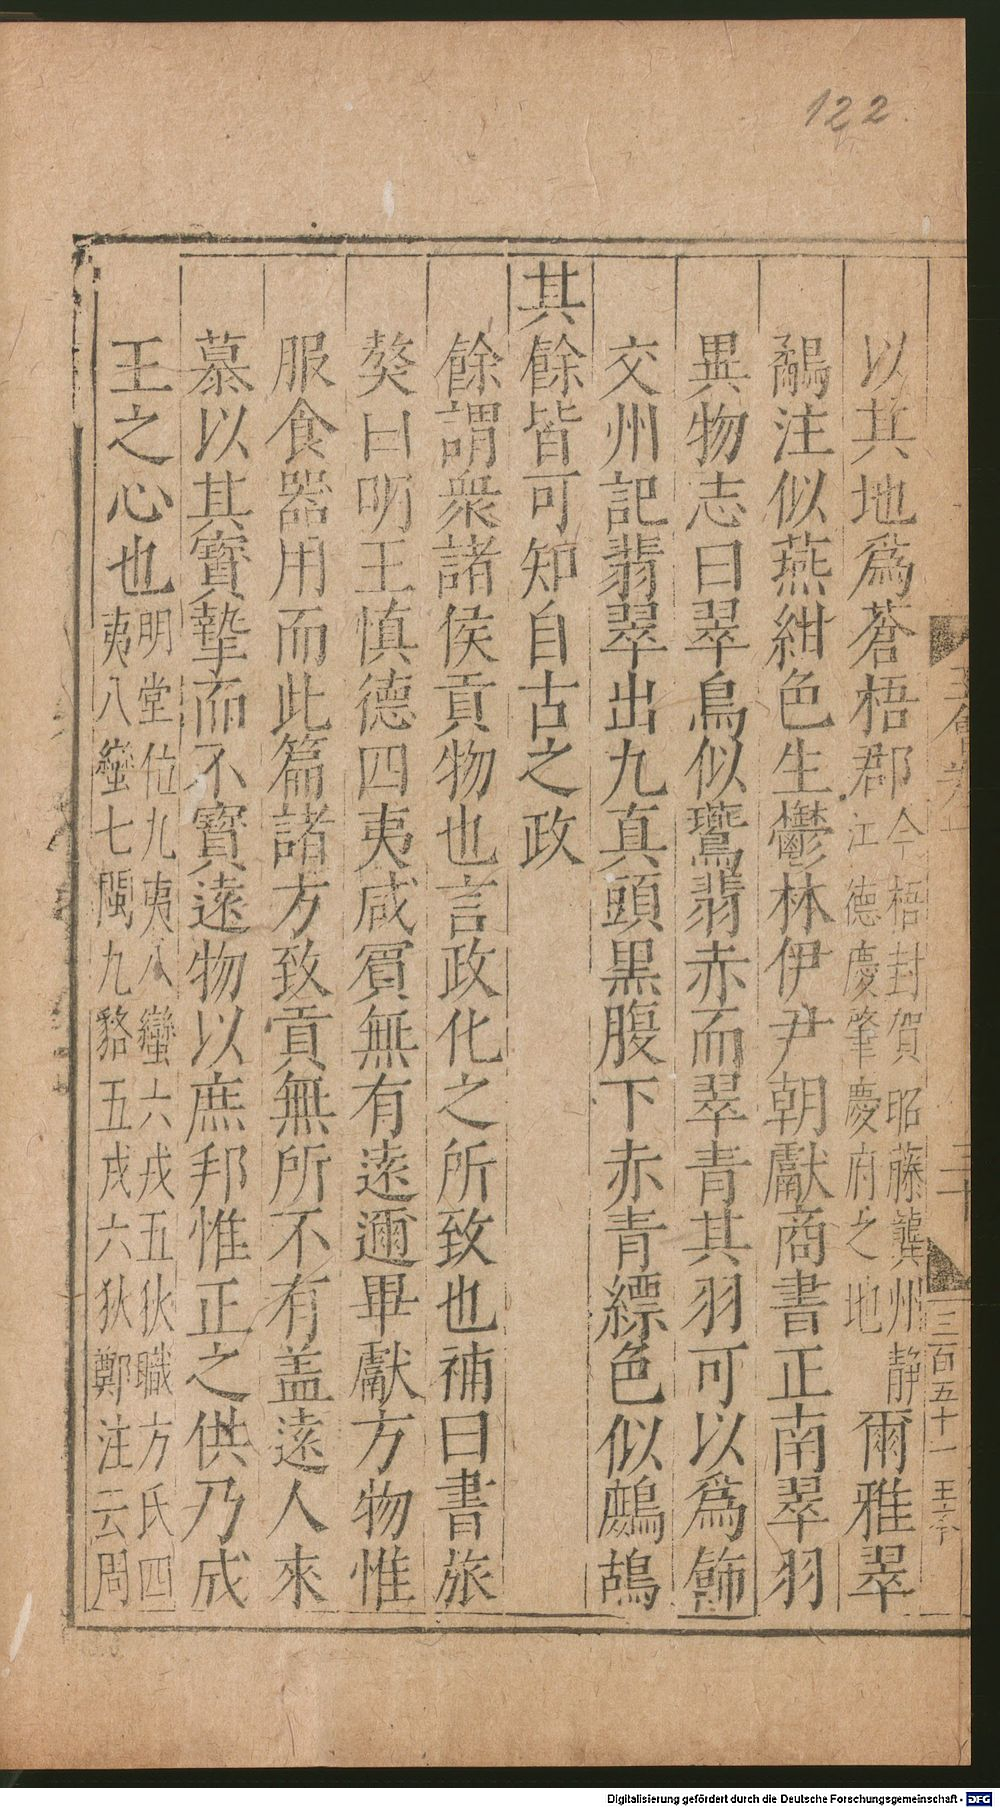 122
以其地爲蒼梧郡今梧封賀昭藤龔州靜江德慶肇慶府之地爾雅翠
鷸注似燕紺色生鬱林伊尹朝獻商書正南翠羽
異物志曰翠鳥似鷰翡赤而翠青其羽可以爲飾
交州記翡翠出九真頭黑腹下赤青縹色似鷓鴣
其餘皆可知自古之政
餘謂衆諸侯貢物也言政化之所致也補曰書旅
獒曰明王慎德四夷咸賓無有遠邇畢獻方物惟
服食器用而此篇諸方致貢無所不有盖遠人來
慕以其寶摯而不寶遠物以庶邦惟正之供乃成
王之心也明堂位九夷八蠻六戎五狄職方氏四夷八蠻七閩九貉五戎六狄鄭注云周
王會卷
三十
三百五十一
Digitalisierung gefördert durch die Deutsche Forschungsgemeinschaft - DFG